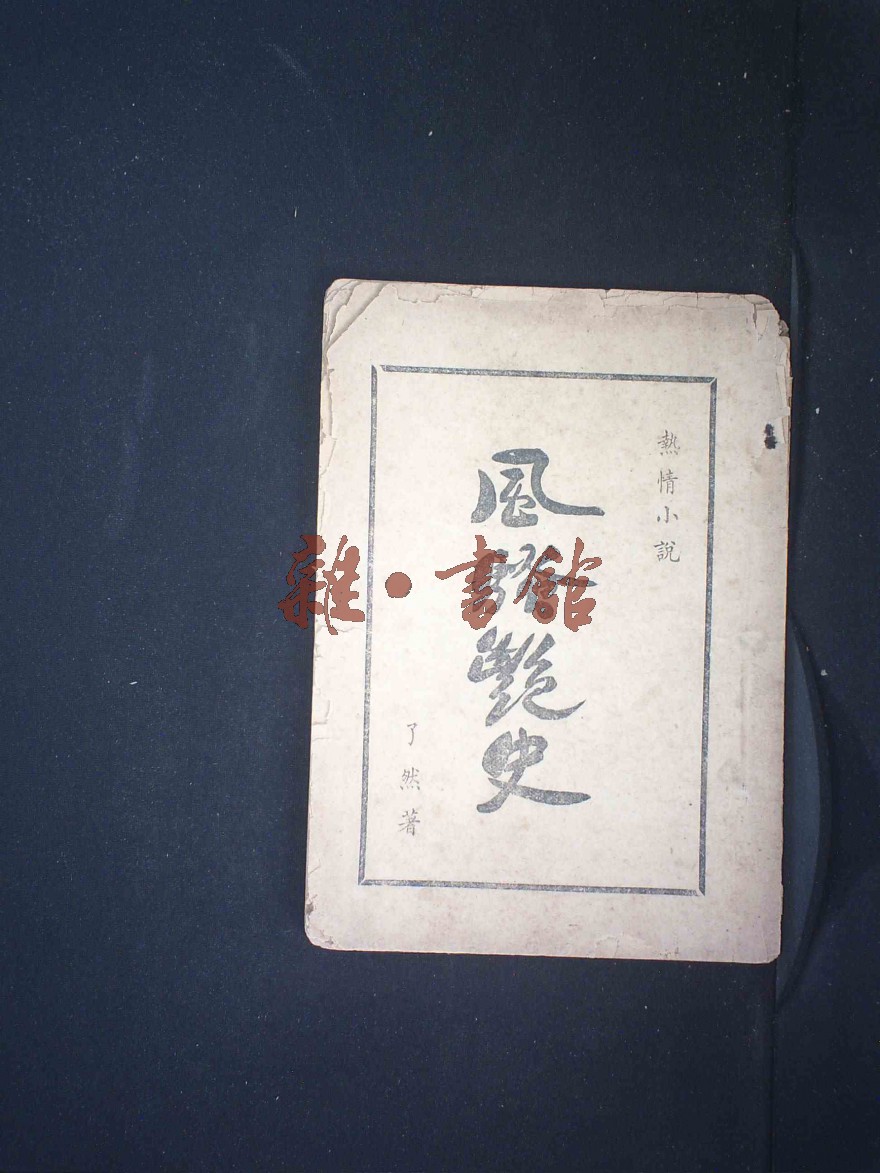 熱情小說
風艷史
了然著
雜·書館